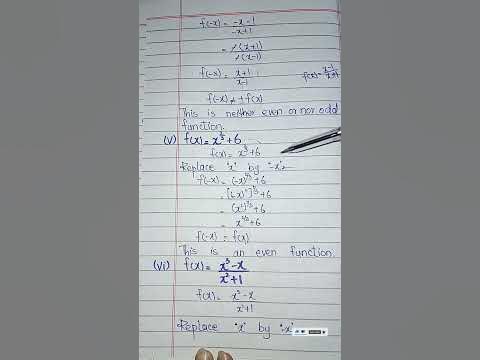 f(-x) = -x-1/-x+1
= -(x+1)/-(x-1)
f(-x) = x+1/x-1
f(x) = x-1/x+1
f(-x) ≠ ±f(x)
This is neither even or nor odd
function.
(v) f(x) = x^2/3 + 6
f(x) = x^2/3 + 6
Replace 'x' by '-x',
f(-x) = (-x)^2/3 + 6
= [(-x)^2]^1/3 + 6
= (x^2)^1/3 + 6
= x^2/3 + 6
f(-x) = f(x)
This is an even function.
(vi) f(x) = x^3-x/x^2+1
f(x) = x^3-x/x^2+1
Replace 'x' by '-x'